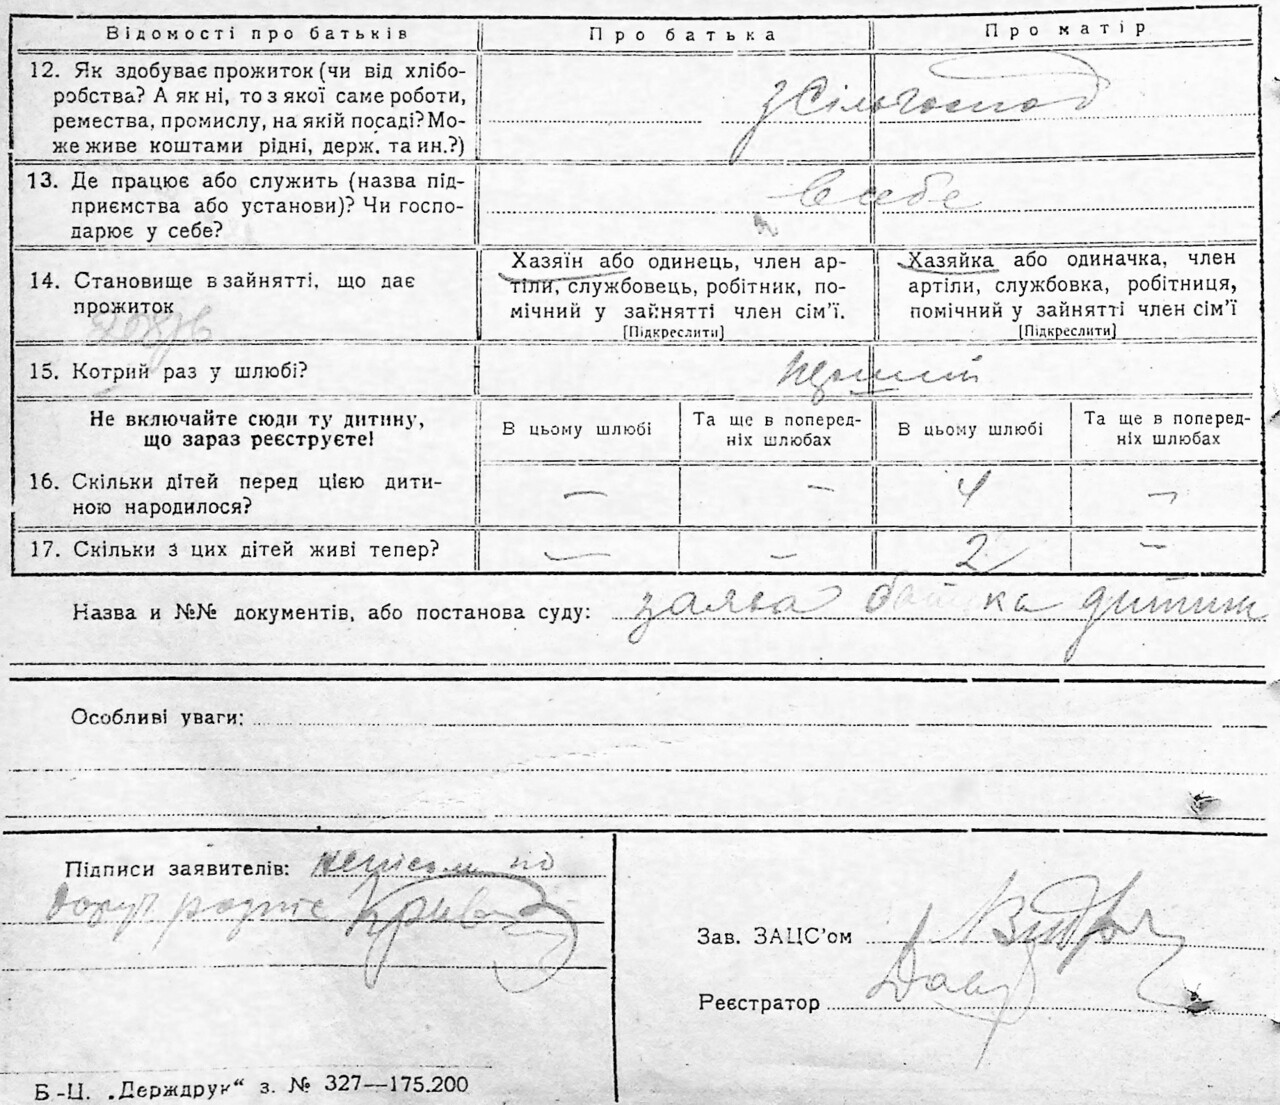 Відомості про батьків Про батька Про матір
12. Як здобуває прожиток (чи від хлібо-
робства? А як ні, то з якої саме роботи,
ремества, промислу, на якій посаді? Мо-
же живе коштами рідні, держ. та ин.?)
з Сільгоспод
13. Де працює або служить (назва під-
приємства або установи)? Чи госпо-
дарює у себе?
в себе
14. Становище в зайнятті, що дає
прожиток
Хазяїн або одинець, член ар-
тіли, службовець, робітник, по-
мічний у зайнятті член сім'ї.
[Підкреслити]
Хазяйка або одиначка, член
артіли, службовка, робітниця,
помічний у зайнятті член сім'ї
[Підкреслити]
15. Котрий раз у шлюбі?
Не включайте сюди ту дитину,
що зараз реєструєте!
В цьому шлюбі
Та ще в поперед-
ніх шлюбах
В цьому шлюбі
Та ще в поперед-
ніх шлюбах
16. Скільки дітей перед цією дити-
ною народилося?
— — 4 —
17. Скільки з цих дітей живі тепер?
— — 2 —
Назва и №№ документів, або постанова суду: заява батька дитини
Особливі уваги:
Підписи заявителів:
Зав. ЗАЦС'ом
Реєстратор
Б.-Ц. „Держдрук“ з. № 327—175.200